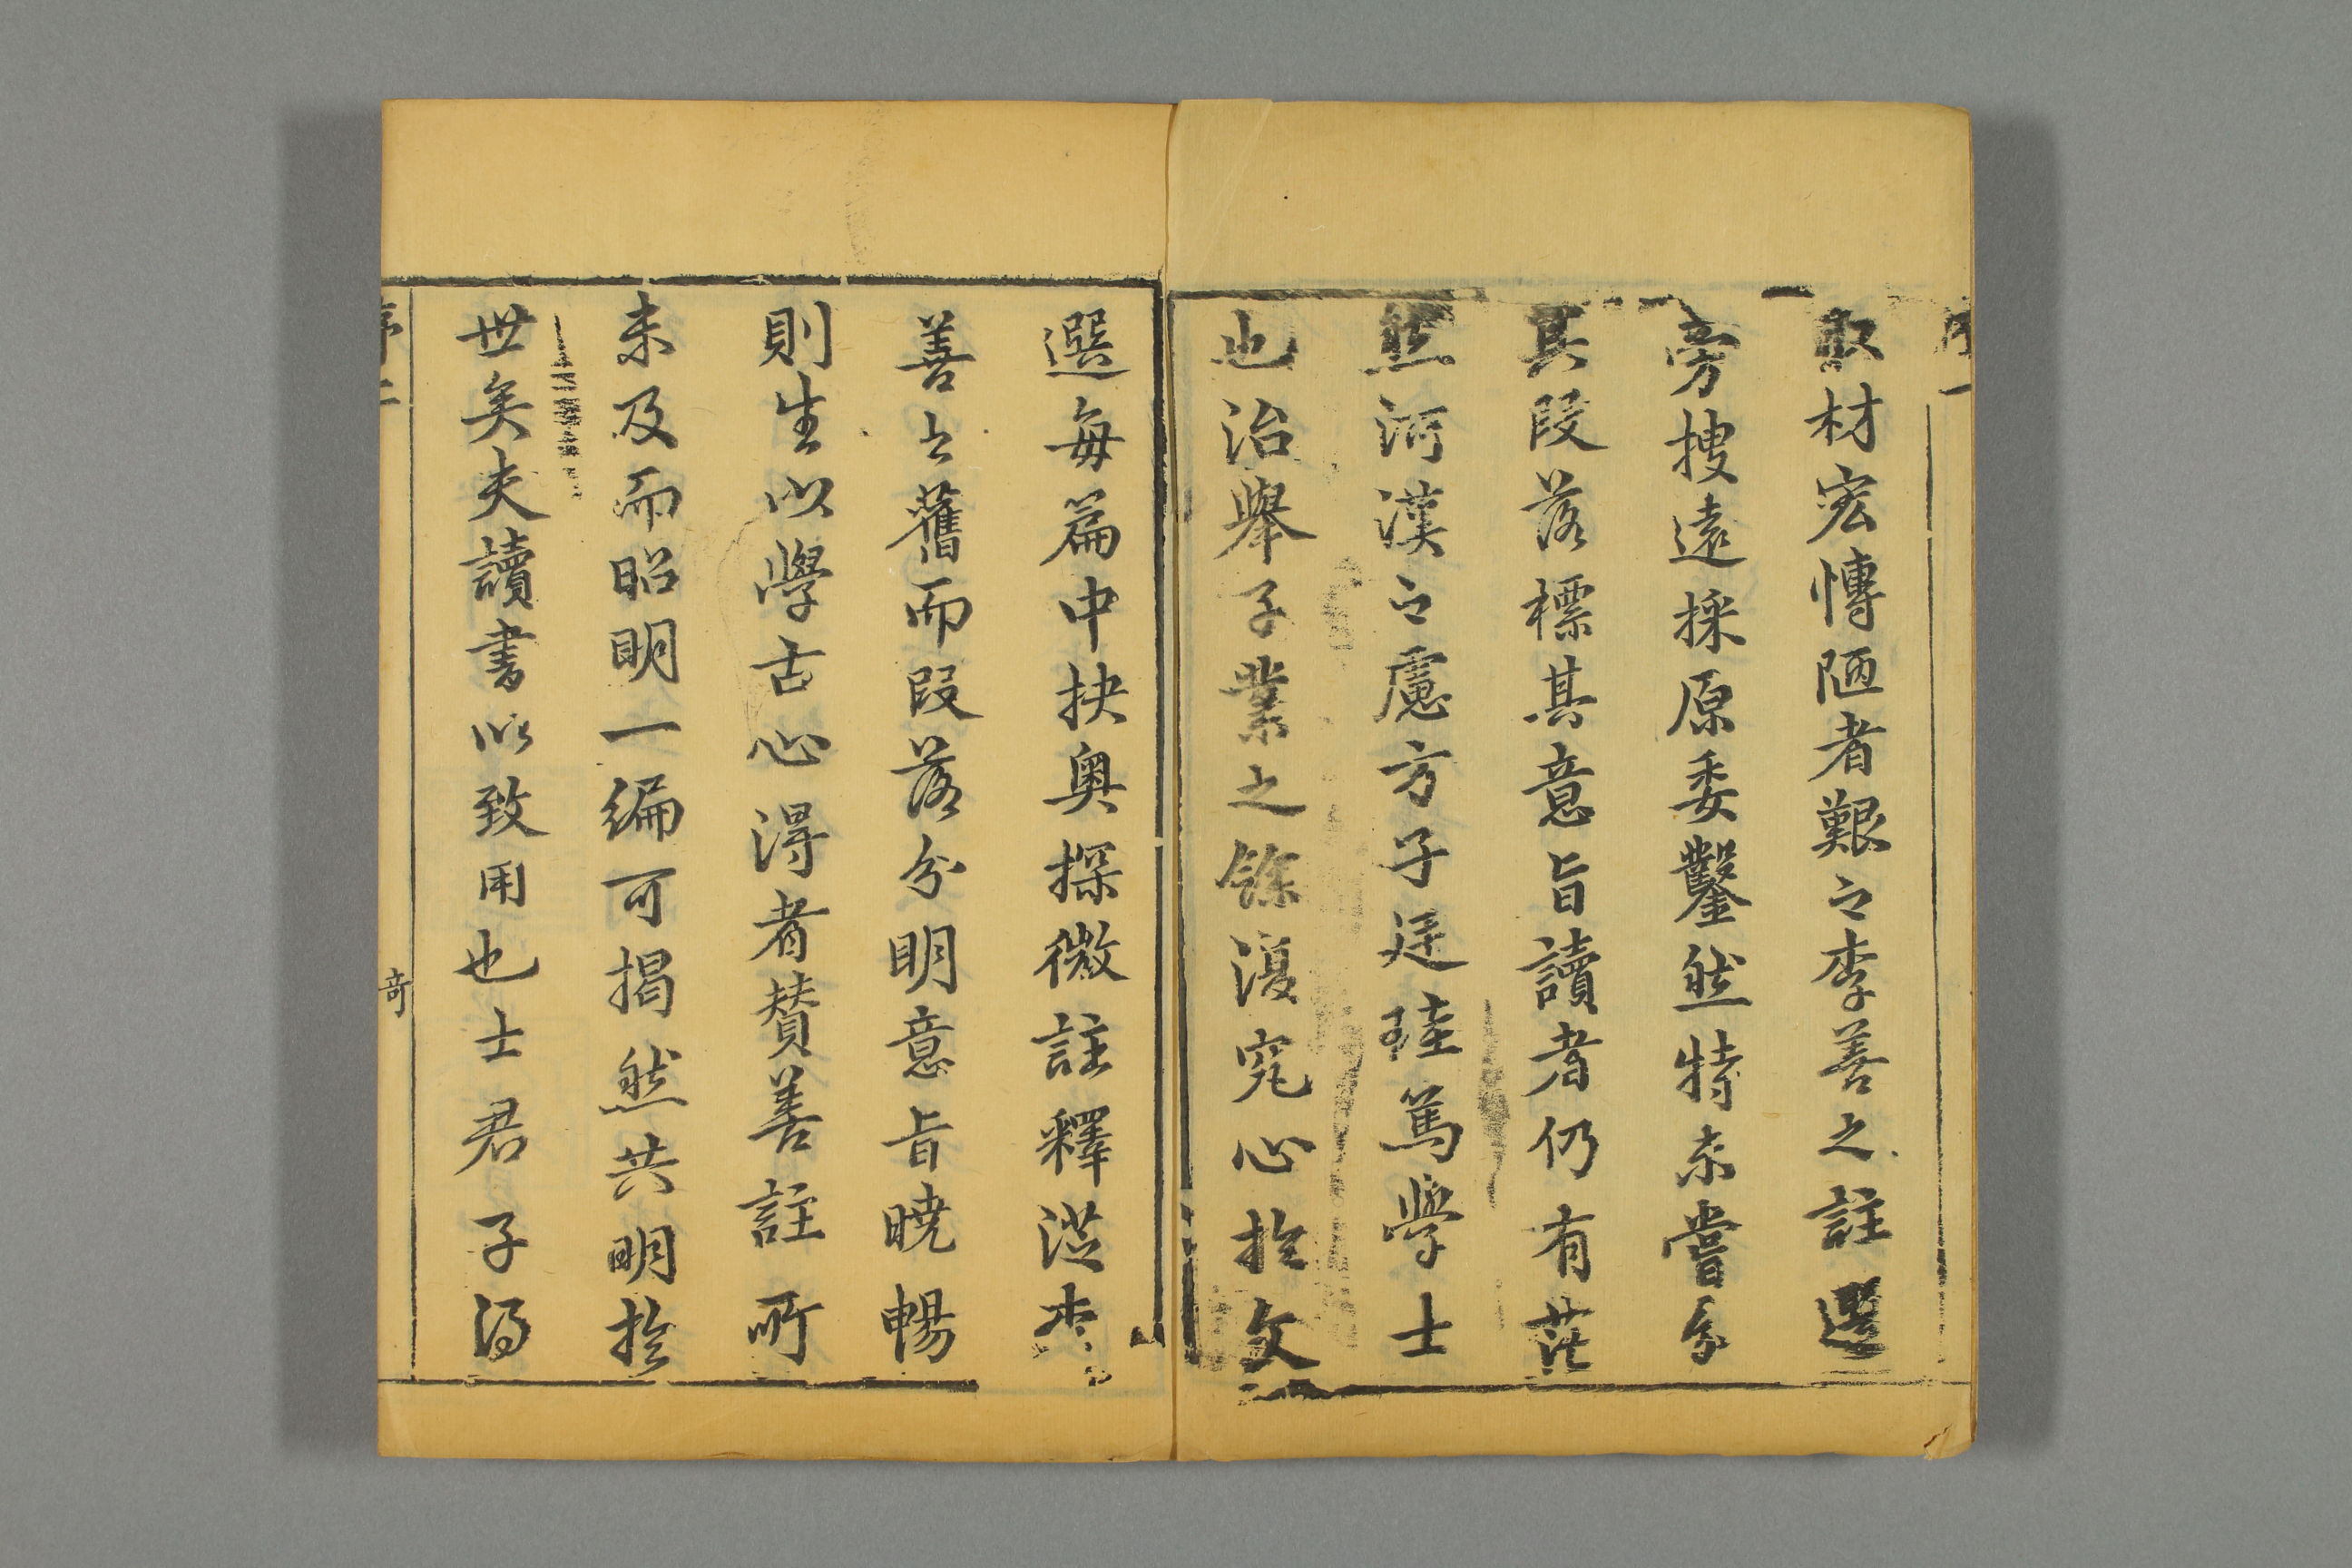 序一
取材宏博陋者艱之李善之註選
旁搜遠採原委鑿然特未嘗分
其段落標其意旨讀者仍有茫
然河漢之慮方子廷珪篤學士
也治舉子業之餘復究心於文
選每篇中抉奧探微註釋從李
善之舊而段落分明意旨曉暢
則生以學古心得者賛善註所
未及而昭明一編可揭然共明於
世矣夫讀書以致用也士君子得
序二
奇